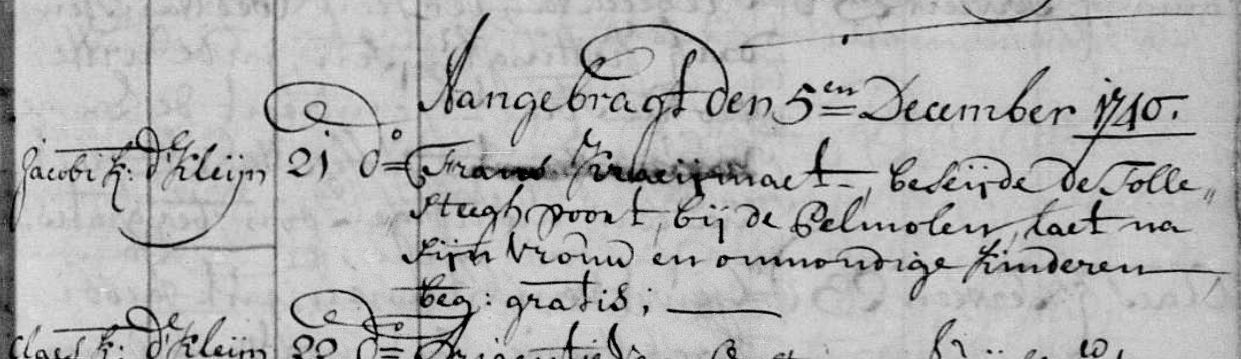 Aangebragt den 5en December 1740.
Jacobi k: d'Kleijn 21 do= Frans Kruijsmaet, beseijde de Tolle„
Steegh poort, bij de Pelmolen, laet na
sijn vrouw en onmondige kinderen
beg: gratis;
Claes k: d'Kleijn 22 do=